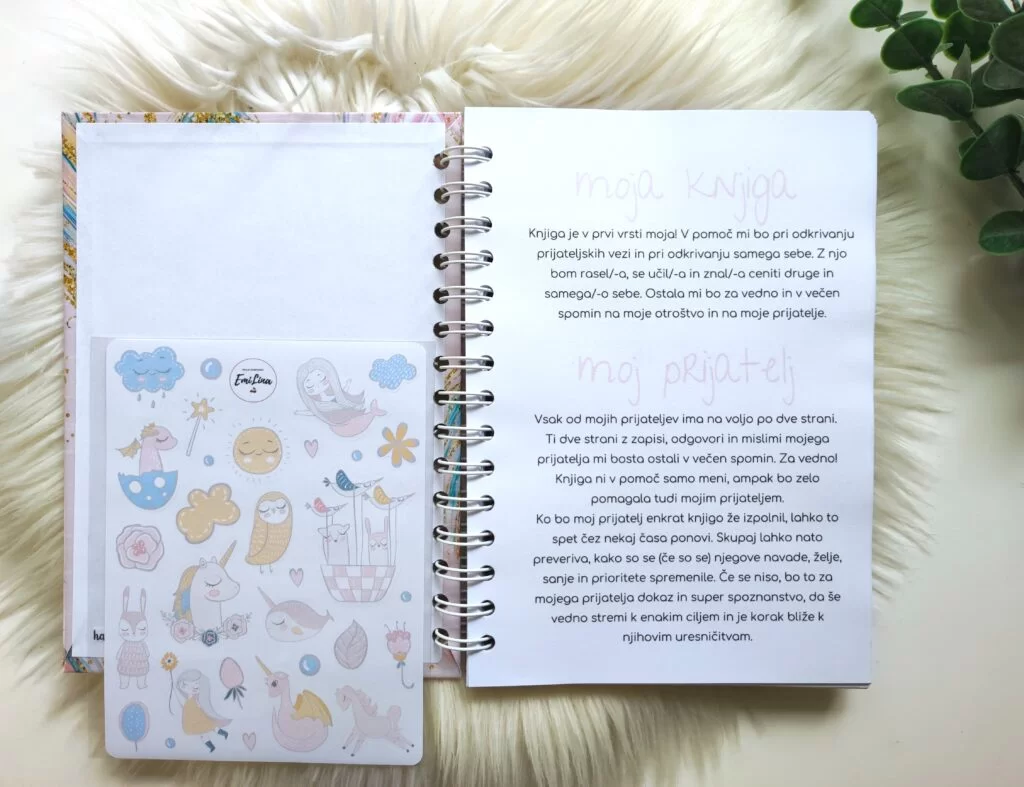 EmiLina
moja knjiga
Knjiga je v prvi vrsti moja! V pomoč mi bo pri odkrivanju
prijateljskih vezi in pri odkrivanju samega sebe. Z njo
bom rasel/-a, se učil/-a in znal/-a ceniti druge in
samega/-o sebe. Ostala mi bo za vedno in v večen
spomin na moje otroštvo in na moje prijatelje.
moj prijatelj
Vsak od mojih prijateljev ima na voljo po dve strani.
Ti dve strani z zapisi, odgovori in mislimi mojega
prijatelja mi bosta ostali v večen spomin. Za vedno!
Knjiga ni v pomoč samo meni, ampak bo zelo
pomagala tudi mojim prijateljem.
Ko bo moj prijatelj enkrat knjigo že izpolnil, lahko to
spet čez nekaj časa ponovi. Skupaj lahko nato
preveriva, kako so se (če so se) njegove navade, želje,
sanje in prioritete spremenile. Če se niso, bo to za
mojega prijatelja dokaz in super spoznanstvo, da še
vedno stremi k enakim ciljem in je korak bližje k
njihovim uresničitvam.